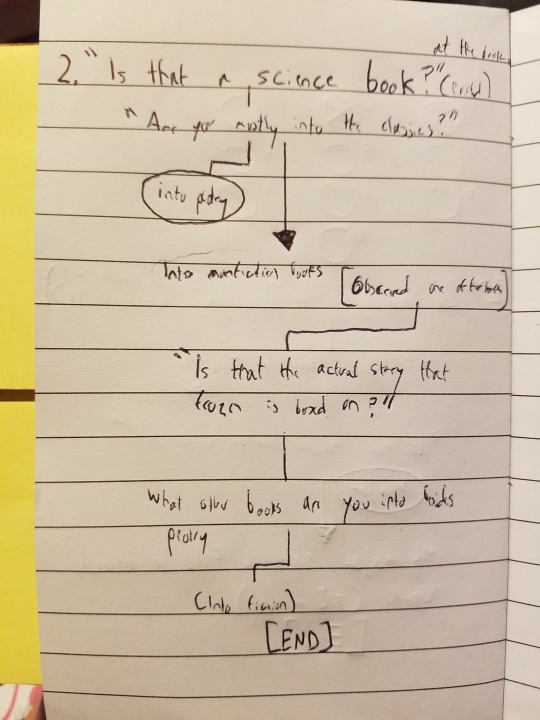 at the
2. "Is that a science book?"
"Are you mostly into the classics?"
into potry
Into nonfiction books [Observed one of her books]
"Is that the actual story that
frozen is based on?"
What other books are you into besides
peotry
(Into fiction)
[END]